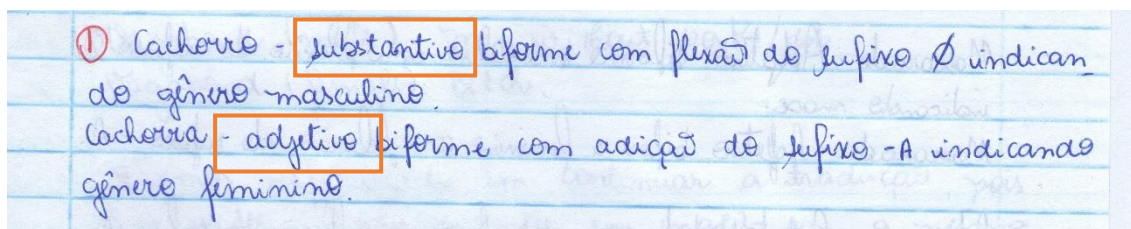 ① Cachorro - substantivo biforme com flexão do sufixo Ø indican_
do gênero masculino.
Cachorra - adjetivo biforme com adição do sufixo -A indicando
gênero feminino.